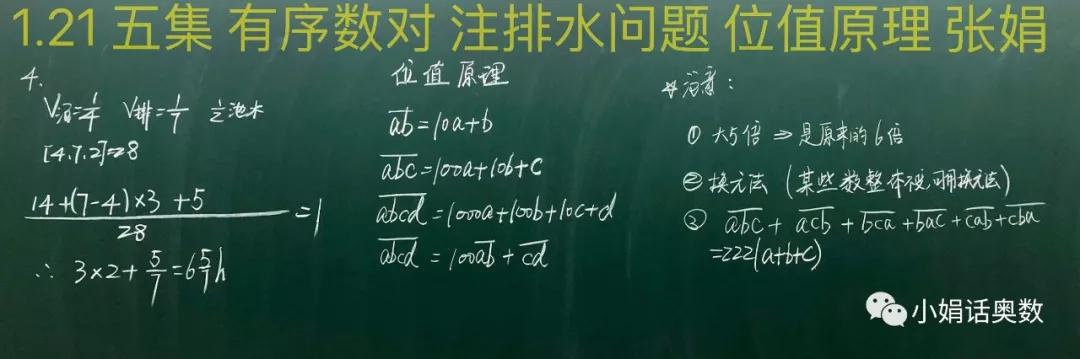 1.21 五集 有序数对 注排水问题 位值原理 张娟
4.
V注=1/4 V排=1/7 1/2池水
[4.7.2]=28
14+(7-4)×3+5/28=1
∴ 3×2+5/7=6 5/7h
位值原理
ab=10a+b
abc=100a+10b+c
abcd=1000a+100b+10c+d
abcd=100ab+cd
注意：
① 大5倍⇒是原来的6倍
② 换元法（某些数整体不变,可用换元法）
③ abc+acb+bca+bac+cab+cba
=222(a+b+c)
小娟话奥数